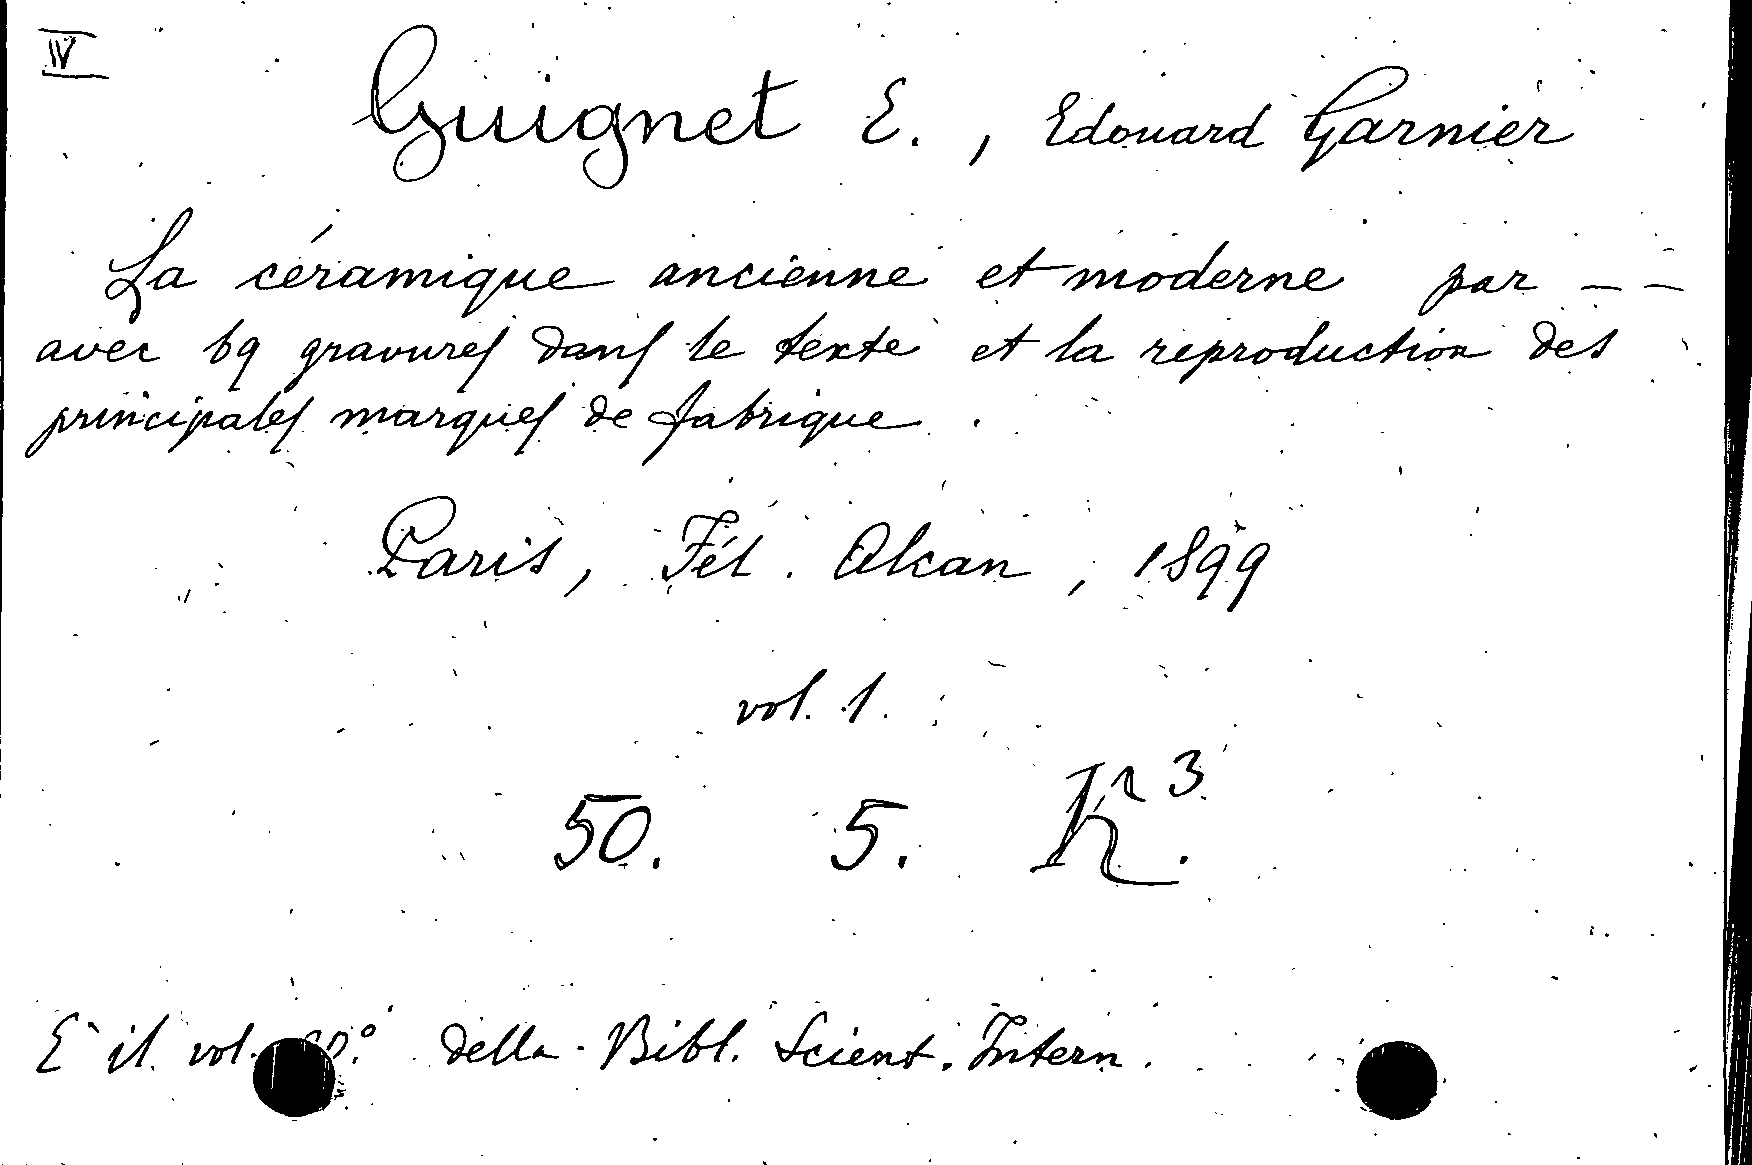 IV
Guignet E. , Edouard Garnier
La céramique ancienne et moderne par — —
avec 69 gravures dans le texte et la reproduction des
principales marques de fabrique .
Paris, Fél. Alcan , 1899
vol. 1.
50. 5. K³.
E' il vol. della Bibl. Scient. Intern.